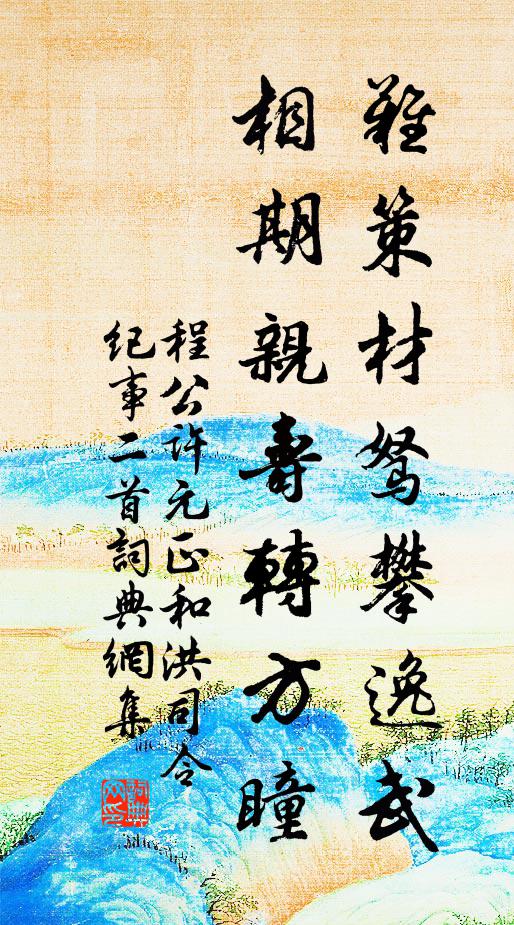 難策材駑攀逸武
相期親壽轉方瞳
程公許元正和洪司令
紀事二首詞典網集